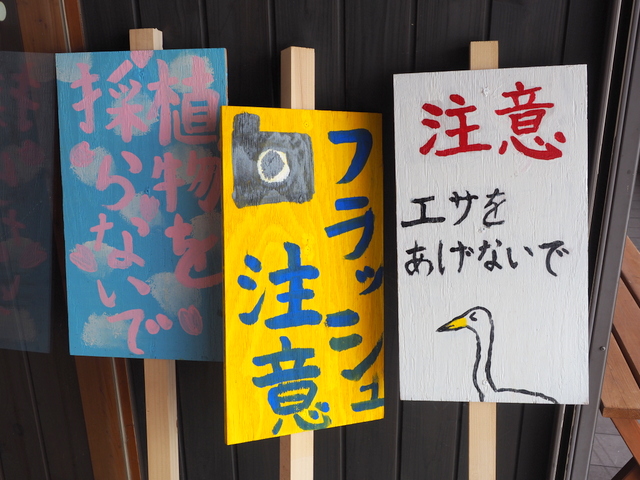 植物を
採らないで
フラッシュ
注意
注意
エサを
あげないで